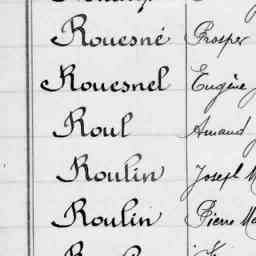 Rouesné Prosper
Rouesnel Eugène
Roul Amand
Roulin Joseph M
Roulin Pierre Ma